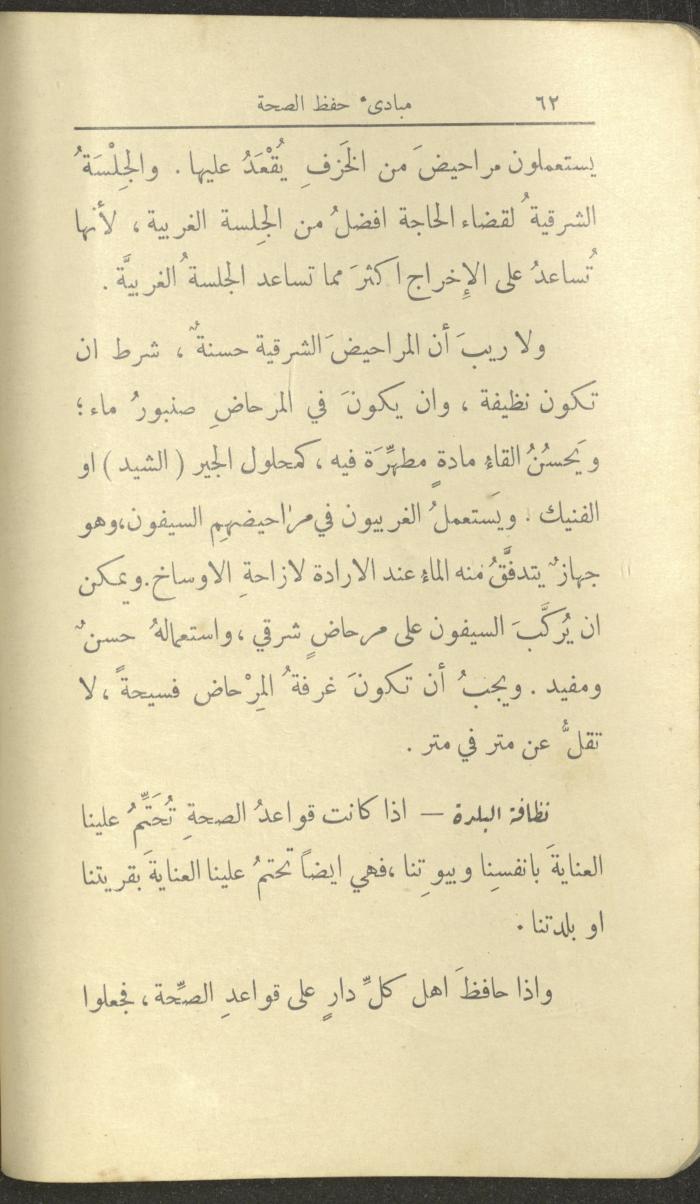 ٦٢ مبادىء حفظ الصحة
يستعملون مراحيضَ من الخَزفِ يُقْعَدُ عليها . والجِلْسَةُ
الشرقيةُ لقضاء الحاجة افضلُ من الجِلسة الغربية ، لأنها
تُساعدُ على الإِخراج اكثرَ مما تساعد الجلسةُ الغربيَّة .
ولا ريبَ أن المراحيضَ الشرقية حسنةٌ ، شرط ان
تكون نظيفة ، وان يكونَ في المرحاضِ صنبورُ ماء ؛
ويَحسُنُ القاءِ مادةٍ مطهِّرَة فيه ، كمحلول الجير ( الشيد ) او
الفنيك . ويَستعملُ الغربيون في مراحيضهِم السيفون ، وهو
جهازٌ يتدفَّقُ منه الماءِ عند الارادة لازاحةِ الاوساخ . ويمكن
ان يُركَّبَ السيفون على مرحاضٍ شرقي ، واستعمالهُ حسنٌ
ومفيد . ويجبُ أن تكونَ غرفةُ المِرْحاض فسيحةً ، لا
تقلُّ عن متر في متر .
نظافة البلدة — اذا كانت قواعدُ الصحةِ تُحَتِّمُ علينا
العنايةَ بانفسِنا وبيوتِنا ، فهي ايضاً تحتمُ علينا العنايةَ بقريتنا
او بلدتنا .
واذا حافظَ اهل كلِّ دارٍ على قواعدِ الصِّحة ، فجعلوا